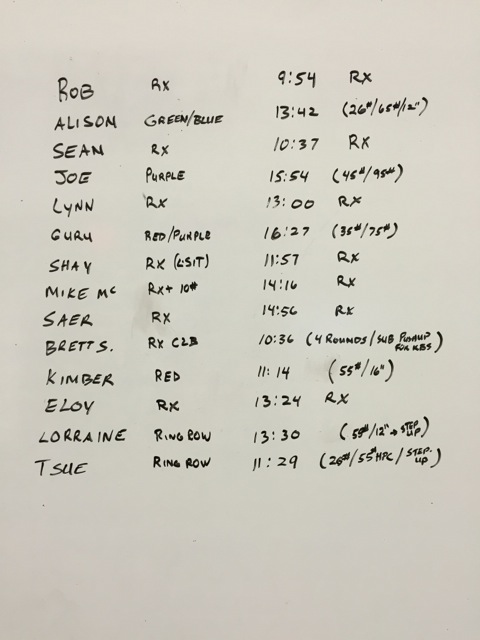 ROB RX 9:54 RX
ALISON GREEN/BLUE 13:42 (26#/65#/12")
SEAN RX 10:37 RX
JOE PURPLE 15:54 (45#/95#)
LYNN RX 13:00 RX
GURU RED/PURPLE 16:27 (35#/75#)
SHAY RX (LSIT) 11:57 RX
MIKE MC RX+ 10# 14:16 RX
SAER RX 14:56 RX
BRETT S. RX C2B 10:36 (4 ROUNDS/SUB PUSHUP FOR KBS)
KIMBER RED 11:14 (55#/16")
ELOY RX 13:24 RX
LORRAINE RING ROW 13:30 (55#/12" → STEP UP)
T SUE RING ROW 11:29 (26#/55# HPC/STEP-UP)